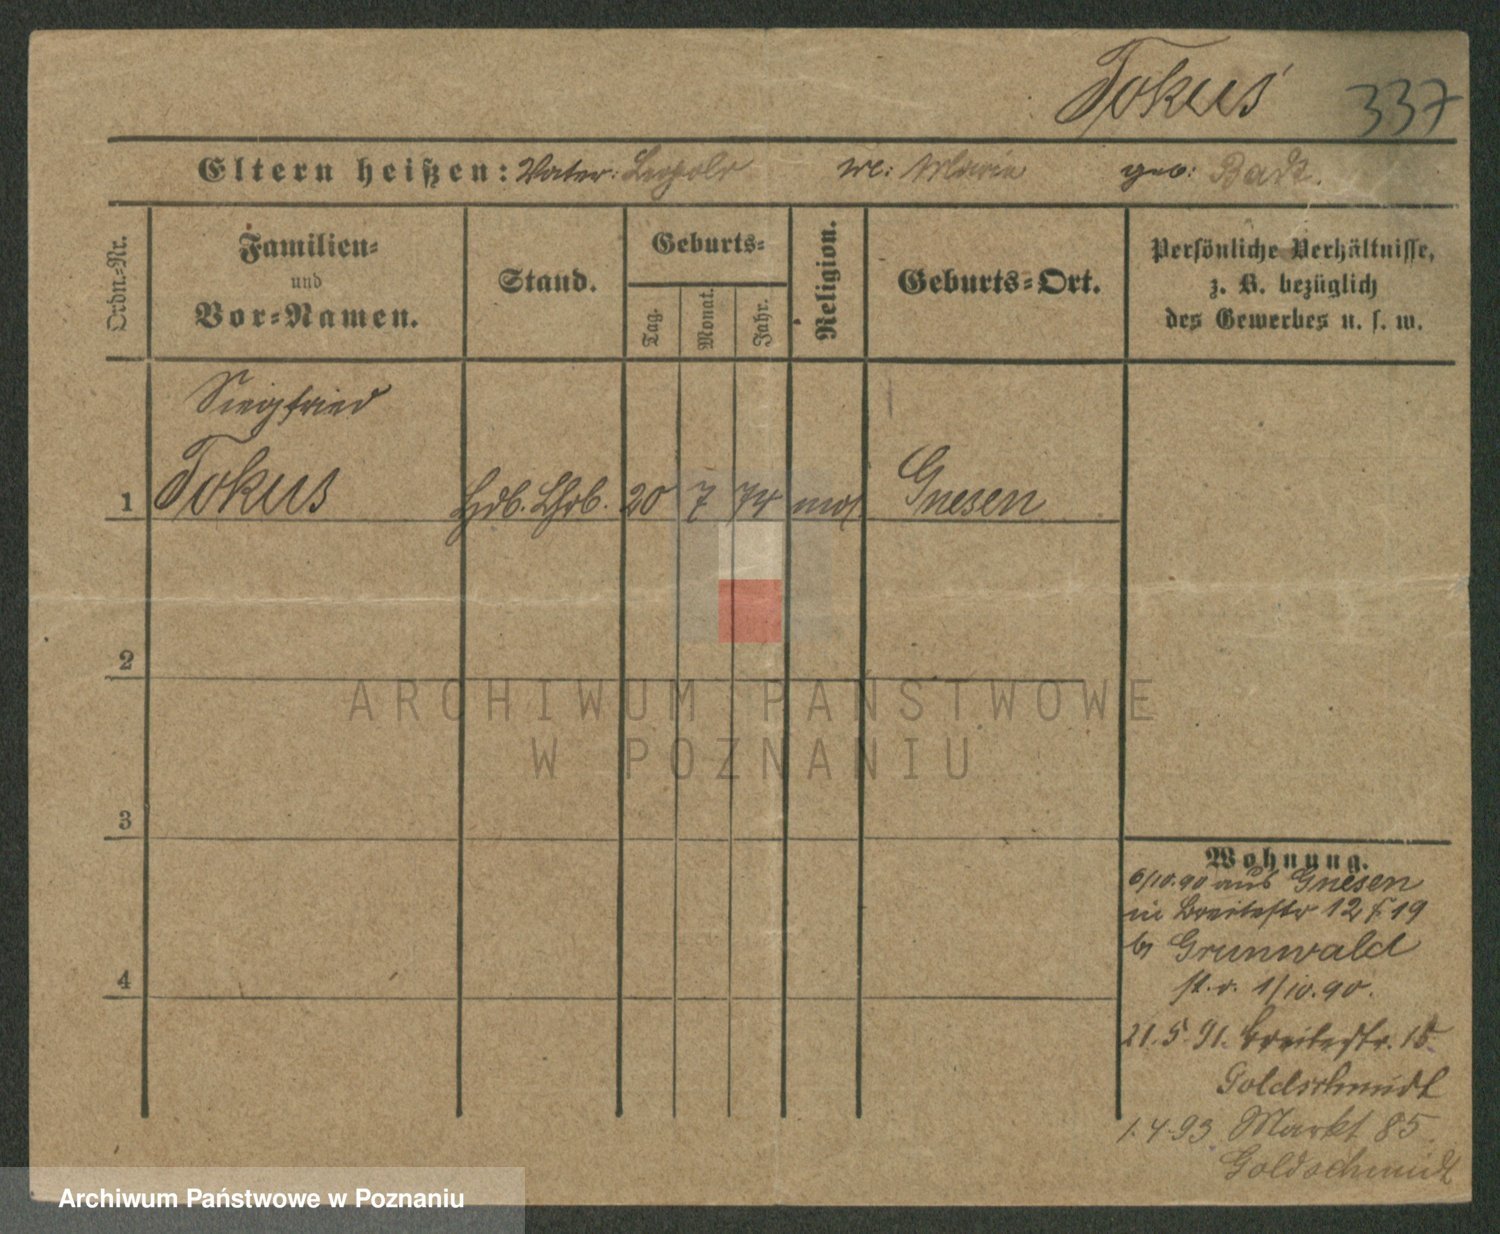 Tokus 337
Eltern heißen: Vater: Leopold M: Marie geb: Badt.
Ordn.-Nr.
Familien-
und
Vor-Namen.
Stand.
Geburts-
Tag.
Monat.
Jahr.
Religion.
Geburts-Ort.
Persönliche Verhältnisse,
z. B. bezüglich
des Gewerbes u. s. w.
Siegfried
1 Tokus Hdl. Lhrl. 20 7 74 mos. Gnesen
2
3
4
Wohnung.
6/10.90 aus Gnesen
in Breitestr 12 19
b/ Grunwald
1/10.90.
21.5.91. Breitestr. 15
Goldschmidt
1.4.93 Markt 85
Goldschmidt
ARCHIWUM PAŃSTWOWE
W POZNANIU
Archiwum Państwowe w Poznaniu